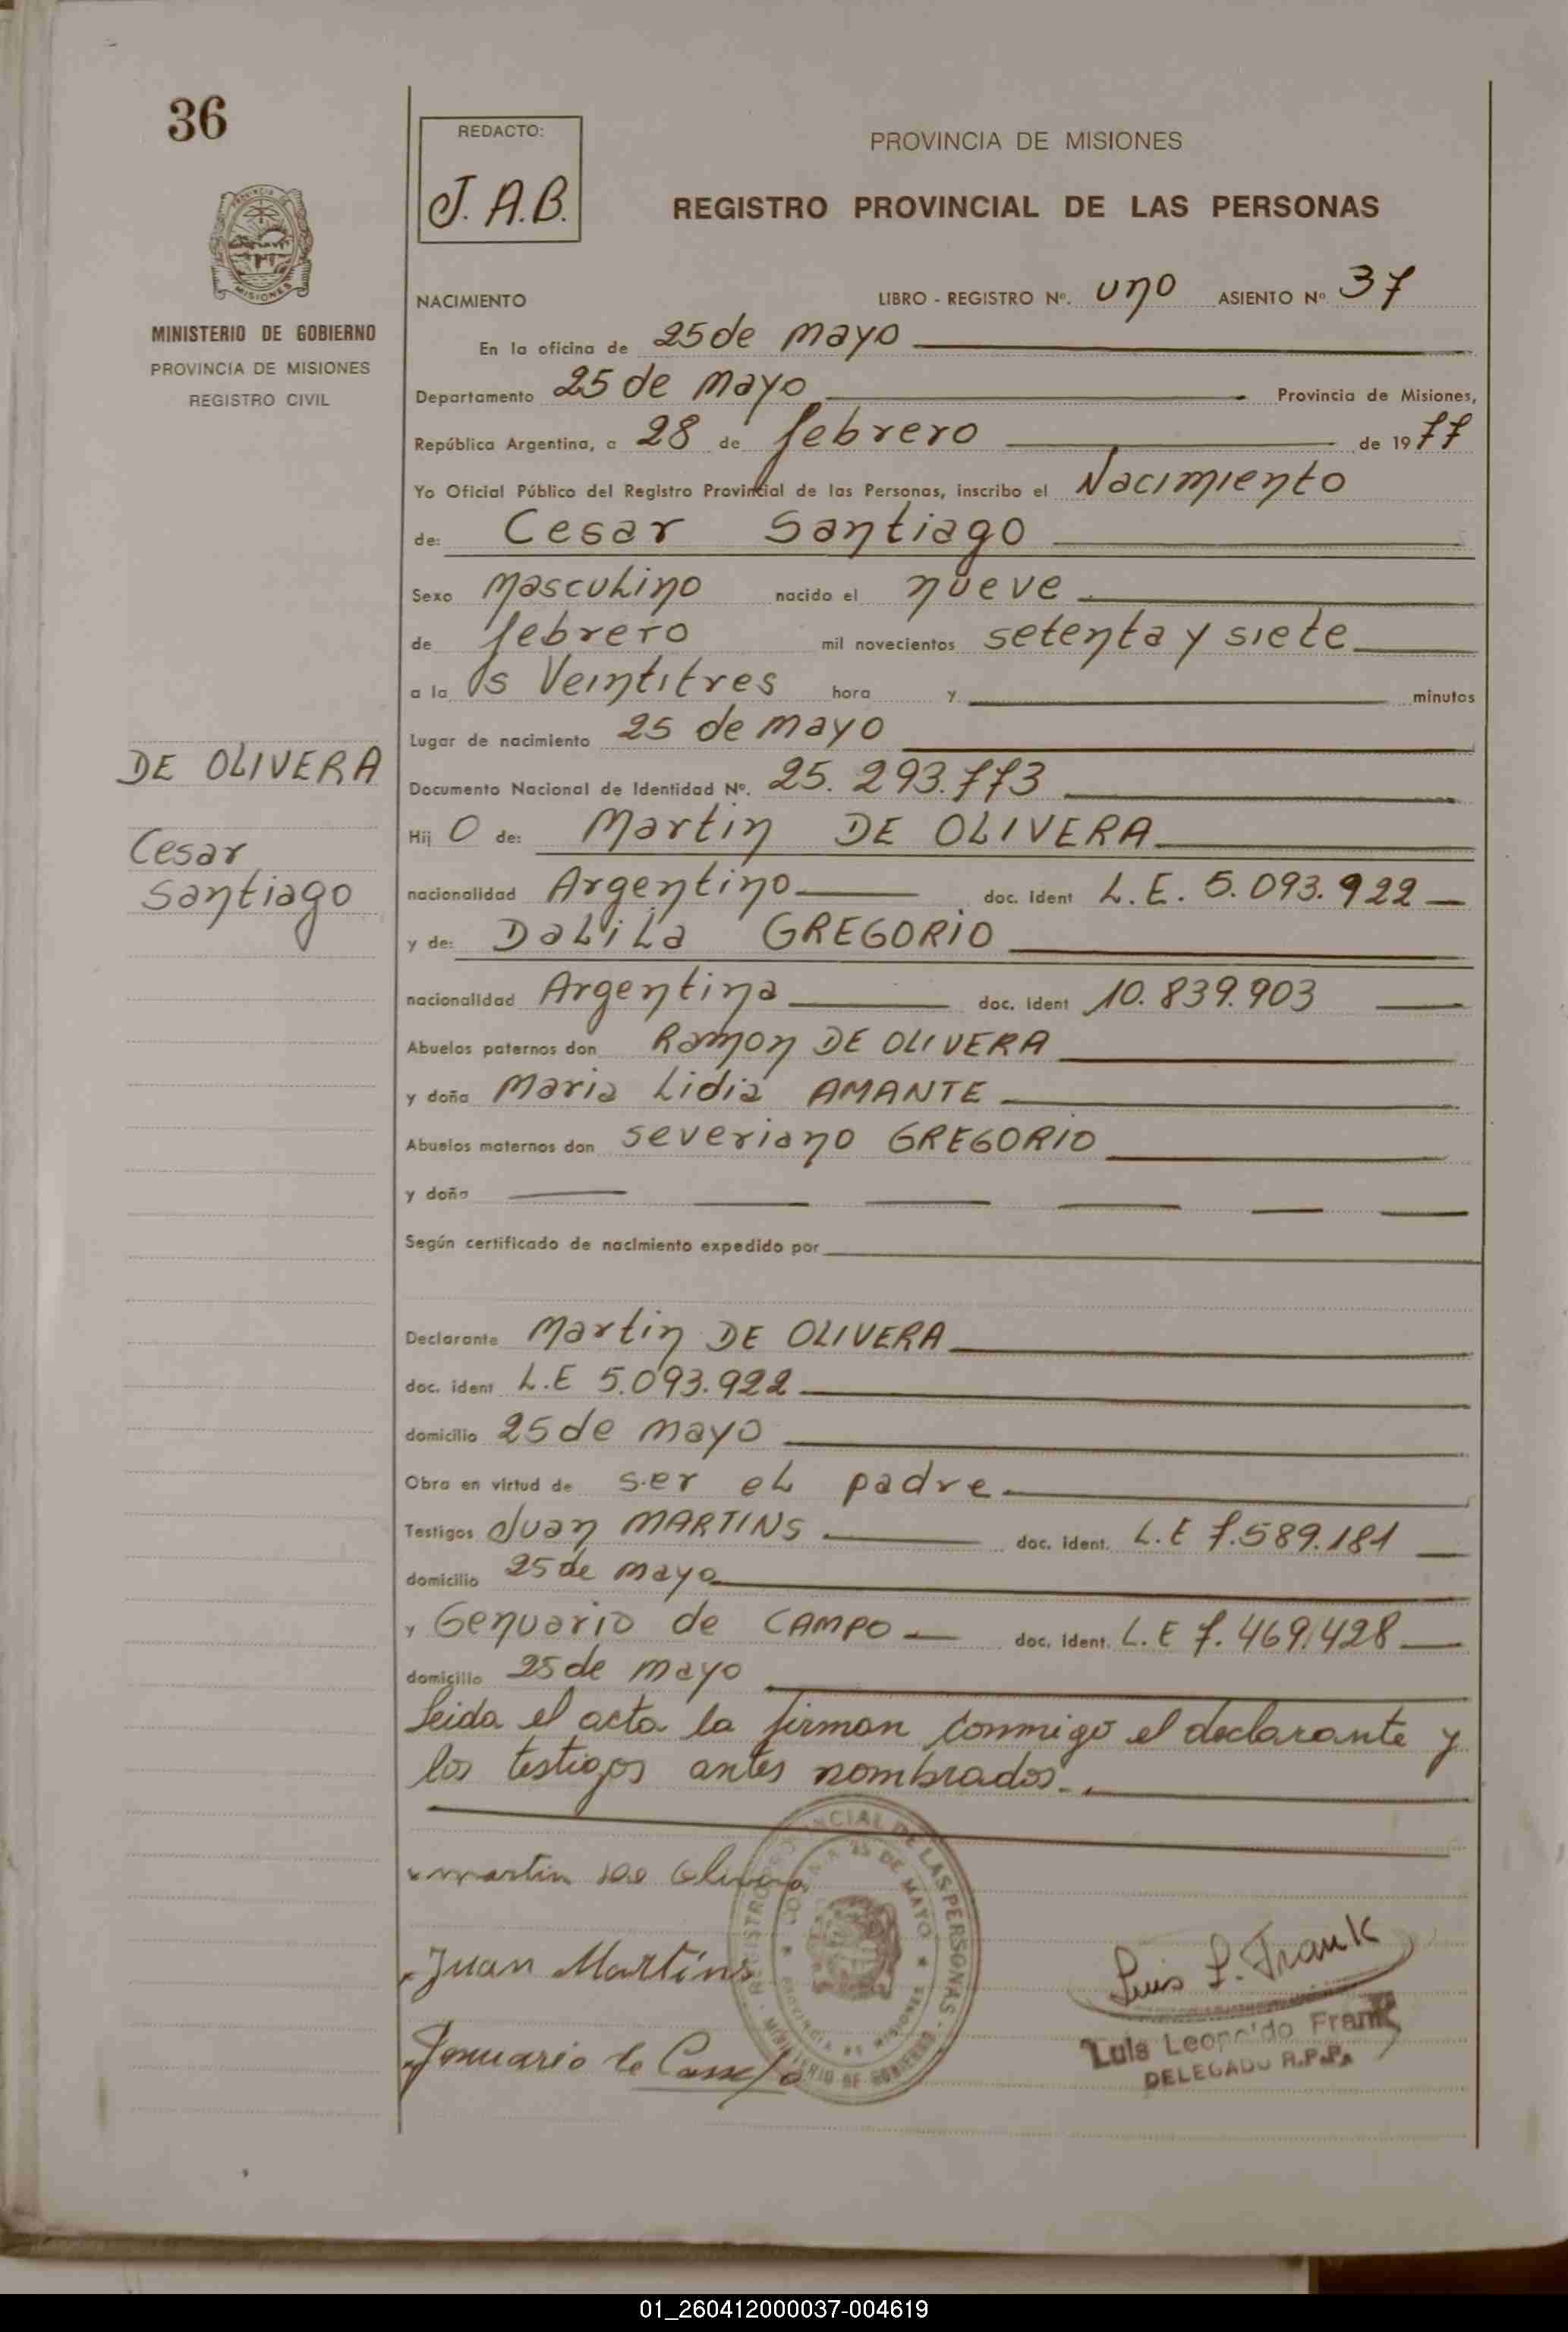 36
REDACTO:
J. A. B.
PROVINCIA DE MISIONES
REGISTRO PROVINCIAL DE LAS PERSONAS
MINISTERIO DE GOBIERNO
PROVINCIA DE MISIONES
REGISTRO CIVIL
NACIMIENTO LIBRO - REGISTRO Nº. uno ASIENTO Nº 37
En la oficina de 25 de mayo
Departamento 25 de mayo Provincia de Misiones,
República Argentina, a 28 de febrero de 1977
Yo Oficial Público del Registro Provincial de las Personas, inscribo el Nacimiento
de: Cesar Santiago
Sexo masculino nacido el nueve
de febrero mil novecientos setenta y siete
a la s Veintitres hora y minutos
Lugar de nacimiento 25 de mayo
DE OLIVERA
Cesar
Santiago
Documento Nacional de Identidad Nº. 25.293.773
Hij O de: Martin DE OLIVERA
nacionalidad Argentino doc. ident L.E. 5.093.922
y de: Dalila GREGORIO
nacionalidad Argentina doc. ident 10.839.903
Abuelos paternos don Ramon DE OLIVERA
y doña Maria Lidia AMANTE
Abuelos maternos don Severiano GREGORIO
y doña
Según certificado de nacimiento expedido por
Declarante Martin DE OLIVERA
doc. ident L.E 5.093.922
domicilio 25 de mayo
Obra en virtud de ser el padre
Testigos Juan MARTINS doc. ident. L.E 7.589.181
domicilio 25 de mayo
y Genuario de CAMPO doc. ident. L.E 7.469.428
domicilio 25 de mayo
Leida el acta la firman conmigo el declarante y
los testigos antes nombrados.
martin de Olivera
Juan Martins
Jenuario de Campo
REGISTRO PROVINCIAL DE LAS PERSONAS - MINISTERIO DE GOBIERNO
COLONIA 25 DE MAYO
PROVINCIA DE MISIONES
Luis L. Frank
Luis Leopoldo Frank
DELEGADO R.P.P.
01_260412000037-004619